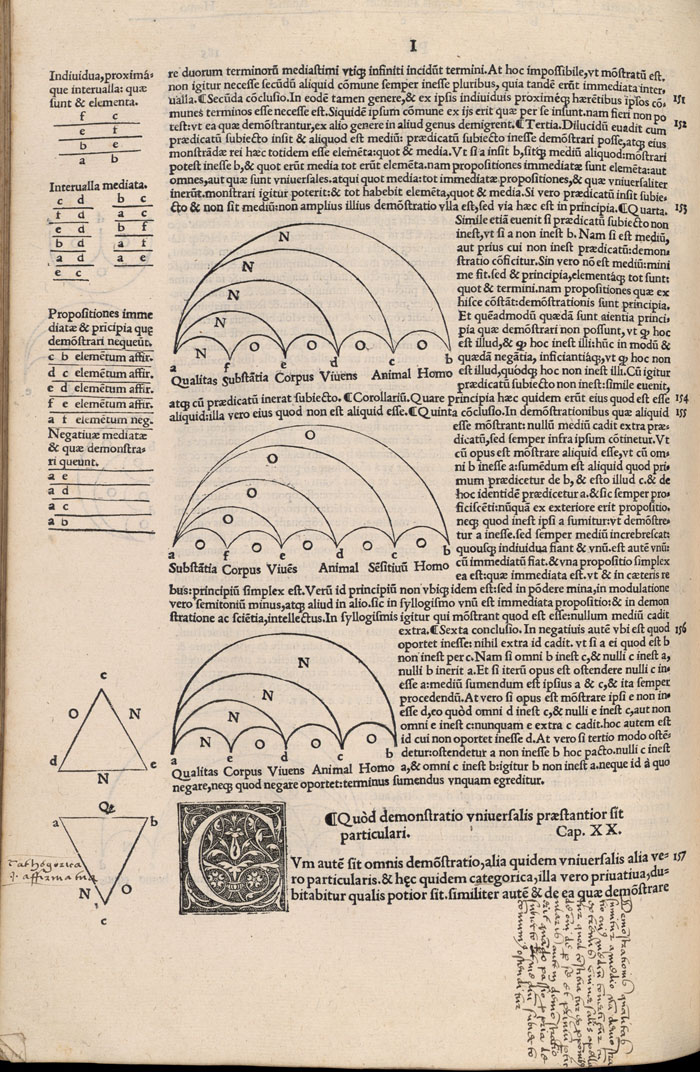 I
Indiuidua,proximá⸗
que interualla: quæ
sunt & elementa.
f c
e f
b e
a b
Interualla mediata.
c d b c
f d a c
e d b f
b d a f
a d a e
e c
Propositiones imme
diatæ & pricipia quę
demõstrari nequeũt.
c b elemẽtum affir.
d c elemẽtum affir.
e d elemẽtum affir.
f e elemẽtum affir.
a f elemẽtum neg.
Negatiuæ mediatæ
& quæ demonstra⸗
ri queunt.
a e
a d
a c
a b
re duorum terminorũ mediastimi vtiq; infiniti incidũt termini. At hoc impossibile, vt mõstratũ est.
non igitur necesse secũdũ aliquid cõmune semper inesse pluribus, quia tandẽ erũt immediata inter⸗
ualla. ¶Secũda cõclusio. In eodẽ tamen genere, & ex ipsis indiuiduis proximéq; hærẽtibus ipsos cõ⸗ 151
munes terminos esse necesse est. Siquidẽ ipsum cõmune ex ijs erit quæ per se insunt. nam fieri non po
test: vt ea quæ demõstrantur, ex alio genere in aliud genus demigrent. ¶Tertia. Dilucidũ euadit cum 152
prædicatũ subiecto insit & aliquod est mediũ: prædicatũ subiecto inesse demõstrari posse, atq; eius
monstrãdæ rei hæc totidem esse elemẽta: quot & media. Vt si a insit b, sitq; mediũ aliquod: mõstrari
potest inesse b, & quot erũt media tot erũt elemẽta. nam propositiones immediatæ sunt elemẽta: aut
omnes, aut quæ sunt vniuersales. atqui quot media: tot immediatæ propositiones, & quæ vniuersaliter
inerũt. monstrari igitur poterit: & tot habebit elemẽta, quot & media. Si vero prædicatũ insit subie⸗
cto & non sit mediũ: non amplius illius demõstratio vlla est, sed via hæc est in principia. ¶Quarta. 153
Simile etiã euenit si prædicatũ subiecto non
inest, vt si a non inest b. Nam si est mediũ,
aut prius cui non inest prædicatũ: demon⸗
stratio cõficitur. Sin vero nõ est mediũ: mini
me fit. sed & principia, elementáq; tot sunt:
quot & termini. nam propositiones quæ ex
hisce cõstãt: demõstrationis sunt principia.
Et quẽadmodũ quædã sunt aientia princi⸗
pia quæ demõstrari non possunt, vt ꝙ hoc
est illud, & ꝙ hoc inest illi: hũc in modũ &
quædã negãtia, inficiantiáq;, vt ꝙ hoc non
est illud, quódq; hoc non inest illi. Cũ igitur
prædicatũ subiecto non inest: simile euenit,
N
N
N
N
N O O O O
a f e d c b
Qualitas Substãtia Corpus Viuens Animal Homo
atq; cũ prædicatũ inerat subiecto. ¶Corollariũ. Quare principia hæc quidem erũt eius quod est esse 154
aliquid: illa vero eius quod non est aliquid esse. ¶Quinta cõclusio. In demõstrationibus quæ aliquid 155
esse mõstrant: nullũ mediũ cadit extra præ⸗
dicatũ, sed semper infra ipsum cõtinetur. Vt
cũ opus est mõstrare aliquid esse, vt cũ om⸗
ni b inesse a: sumẽdum est aliquid quod pri⸗
mum prædicetur de b, & esto illud c. & de
hoc identidẽ prædicetur a. & sic semper pro⸗
ficiscẽti: nũquã ex exteriore erit propositio,
neq; quod inest ipsi a sumitur: vt demõstre⸗
tur a inesse. sed semper mediũ increbrescat:
quousq; indiuidua fiant & vnũ. est autẽ vnũ:
cũ immediatũ fiat. & vna propositio simplex
ea est: quæ immediata est. vt & in cæteris re
O
O
O
O
O O O O O
a f e d c b
Substãtia Corpus Viuẽs Animal Sẽsitiuũ Homo
bus: principiũ simplex est. Verũ id principiũ non vbiq; idem est: sed in põdere mina, in modulatione
vero semitoniũ minus, atq; aliud in alio. sic in syllogismo vnũ est immediata propositio: & in demon
stratione ac sciẽtia, intellectus. In syllogismis igitur qui mõstrant quod est esse: nullum mediũ cadit
extra. ¶Sexta conclusio. In negatiuis autẽ vbi est quod 156
oportet inesse: nihil extra id cadit. vt si a ei quod est b
non inest per c. Nam si omni b inest c, & nulli c inest a,
nulli b inerit a. Et si iterũ opus est ostendere nulli c in⸗
esse a: mediũ sumendum est ipsius a & c, & ita semper
procedendũ. At vero si opus est mõstrare ipsi e non in⸗
esse d, eo quòd omni d inest c, & nulli e inest c, aut non
omni e inest c: nunquam e extra c cadit. hoc autem est
id cui non oportet inesse d. At vero si tertio modo ostẽ⸗
detur: ostendetur a non inesse b hoc pacto. nulli c inest
a, & omni c inest b: igitur b non inest a. neque id à quo
N
N
N
N O O O
a e d c b
Qualitas Corpus Viuens Animal Homo
negare, neq; quod negare oportet: terminus sumendus vnquam egreditur.
c
O N
d e
N
Q
a b
N O
c
Cathegorica
¶Quòd demonstratio vniuersalis præstantior sit
particulari. Cap. XX.
CVm autẽ sit omnis demõstratio, alia quidem vniuersalis alia ve⸗ 157
ro particularis. & hęc quidem categorica, illa vero priuatiua, du⸗
bitabitur qualis potior sit. similiter autẽ & de ea quæ demõstrare